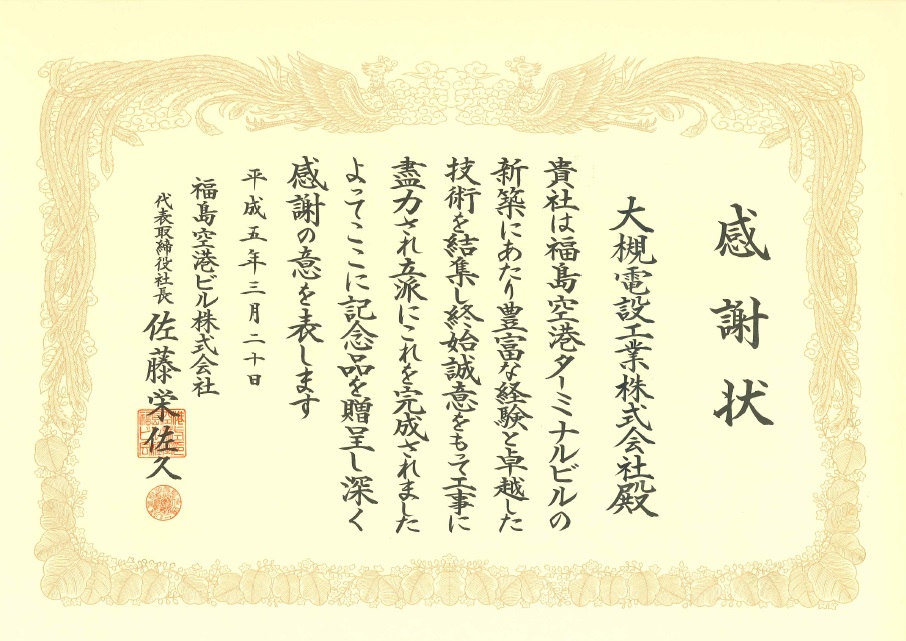 感謝状
大槻電設工業株式会社殿
貴社は福島空港ターミナルビルの
新築にあたり豊富な経験と卓越した
技術を結集し終始誠意をもって工事に
盡力され立派にこれを完成されました
よってここに記念品を贈呈し深く
感謝の意を表します
平成五年三月二十日
福島空港ビル株式会社
代表取締役社長 佐藤栄佐久